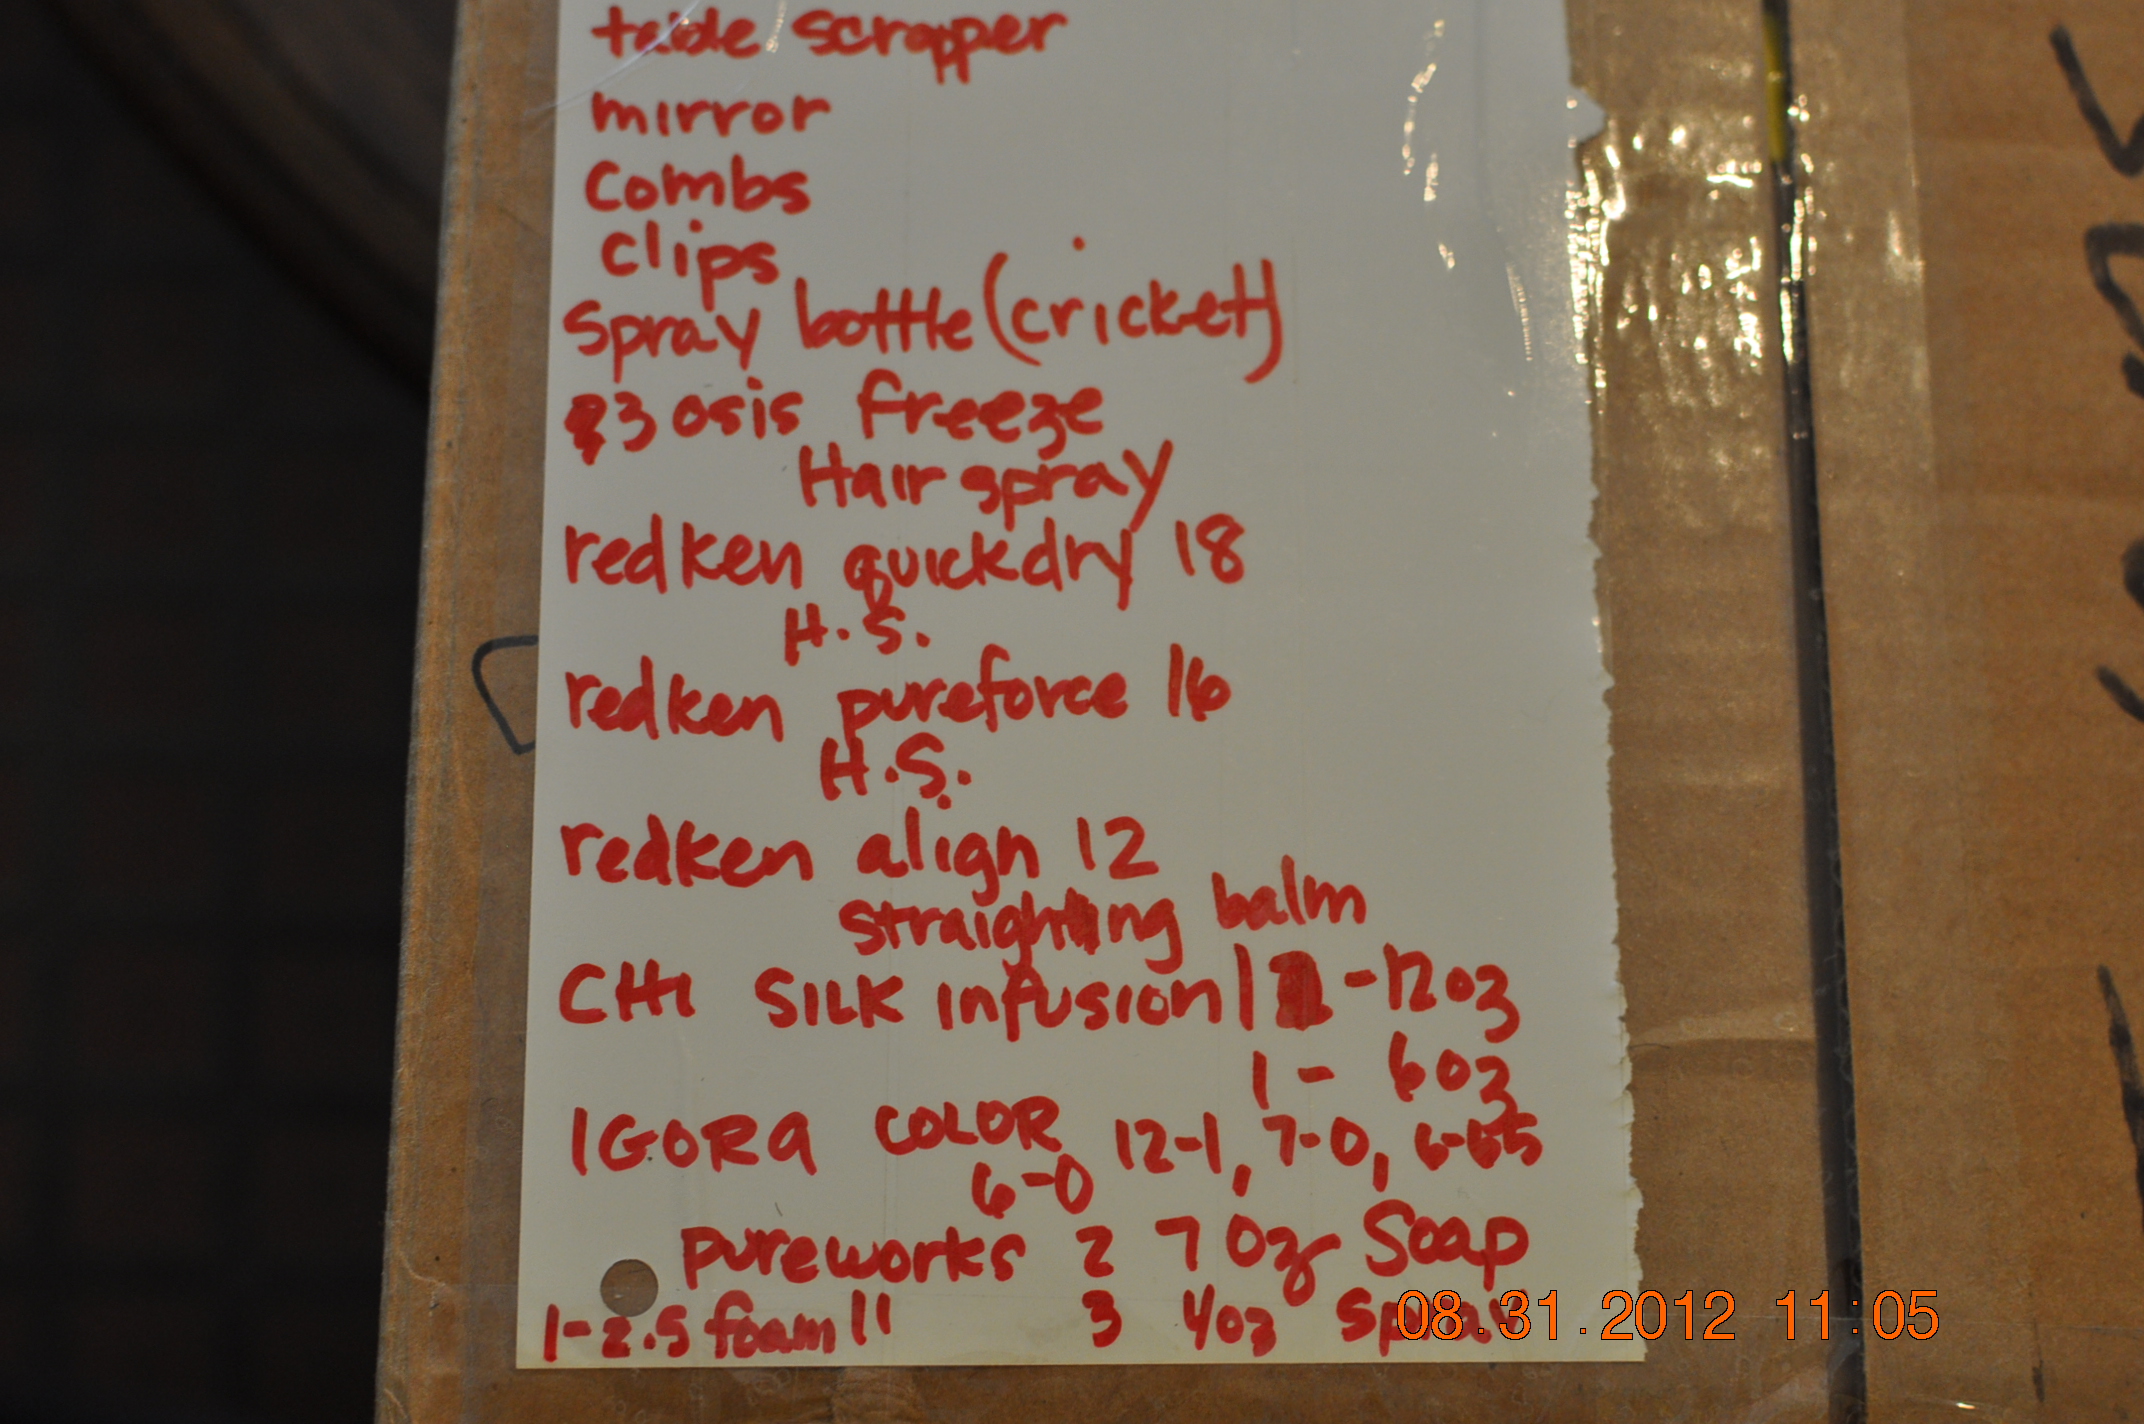 table scrapper
mirror
Combs
clips
Spray bottle (cricket)
3 osis freeze
Hair spray
redken quickdry 18
H.S.
redken pureforce 16
H.S.
redken align 12
straighting balm
CHI SILK infusion 1 - 12oz
1 - 6oz
IGORA COLOR 12-1, 7-0, 6-65
6-0
pureworks 2 7 Oz Soap
1-2.5 foam 11 3 4oz spray
08.31.2012 11:05